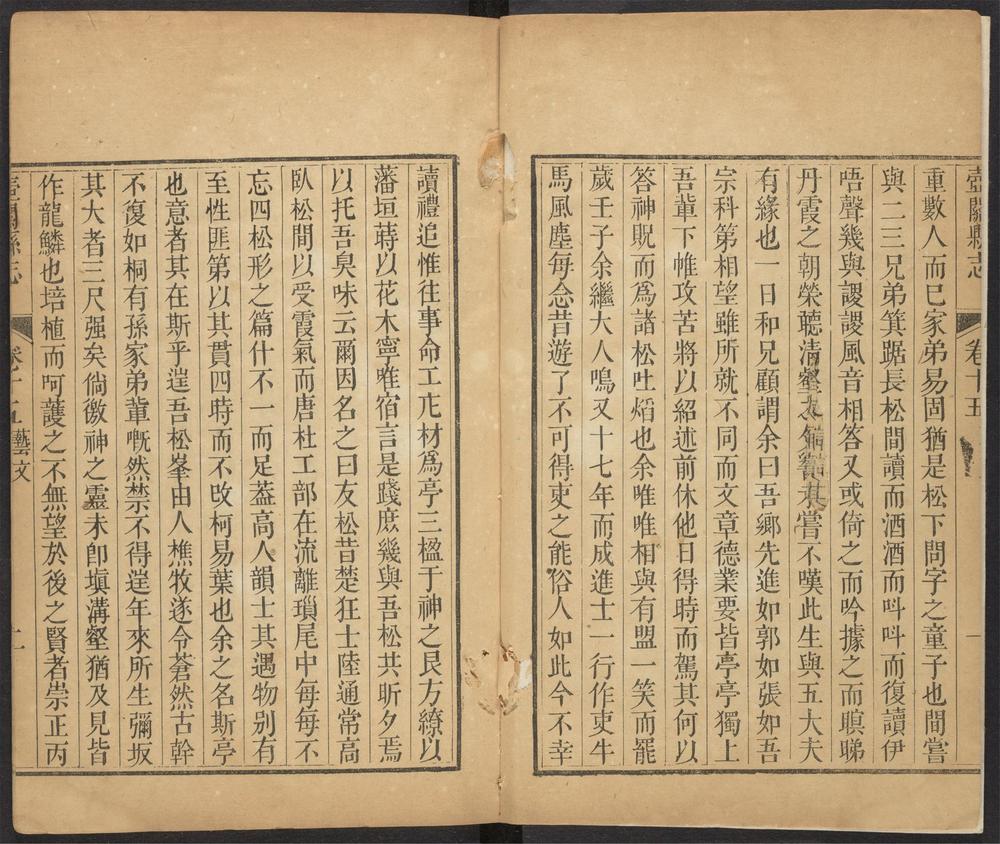 壺關縣志
卷十五
一
重數人而已家弟易固猶是松下問字之童子也間嘗
與二三兄弟箕踞長松間讀而酒酒而呌呌而復讀伊
唔聲幾與謖謖風音相答又或倚之而吟據之而瞑睇
丹霞之朝榮聽清壑之 嘗不嘆此生與五大夫
有緣也一日和兄顧謂余曰吾鄉先進如郭如張如吾
宗科第相望雖所就不同而文章德業要皆亭亭獨上
吾軰下帷攻苦將以紹述前休他日得時而駕其何以
答神貺而爲諸松吐熖也余唯唯相與有盟一笑而罷
歲壬子余繼大人鳴又十七年而成進士一行作吏牛
馬風塵每念昔遊了不可得吏之能俗人如此今不幸
讀禮追惟往事命工庀材爲亭三楹于神之艮方繚以
藩垣蒔以花木寧唯宿言是踐庶幾與吾松共昕夕焉
以托吾臭味云爾因名之曰友松昔楚狂士陸通常高
臥松間以受霞氣而唐杜工部在流離瑣尾中每每不
忘四松形之篇什不一而足葢高人韻士其遇物别有
至性匪第以其貫四時而不攺柯易葉也余之名斯亭
也意者其在斯乎逆吾松峯由人樵牧遂令蒼然古幹
不復如桐有孫家弟軰慨然禁不得逆年來所生彌坂
其大者三尺强矣倘徼神之靈未卽塡溝壑猶及見皆
作龍鱗也培植而呵護之不無望於後之賢者崇正丙
壺關縣志
卷十五
藝文